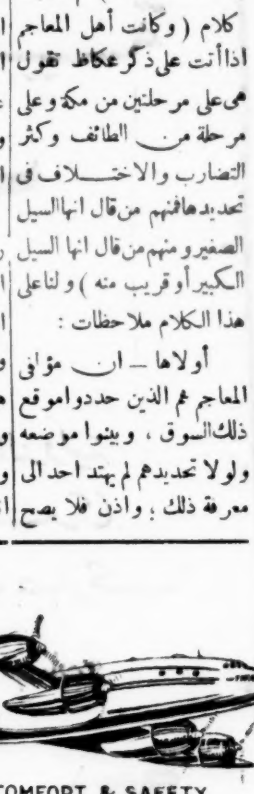 كلام ( وكانت أهل المعاجم
اذا أتت على ذكر عكاظ تقول
هى على مرحلتين من مكة وعلى
مرحلة من الطائف وكثر
التضارب والاختـلاف فى
تحديدها فمنهم من قال انها السيل
الصغير ومنهم من قال انها السيل
الكبير أو قريب منه ) ولنا على
هذا الكلام ملاحظات :
أولاها – ان مؤلفى
المعاجم هم الذين حددوا موقع
ذلك السوق ، وبينوا موضعه
ولولا تحديدهم لم يهتد احد الى
معرفة ذلك ، واذن فلا يصح
COMFORT & SAFETY